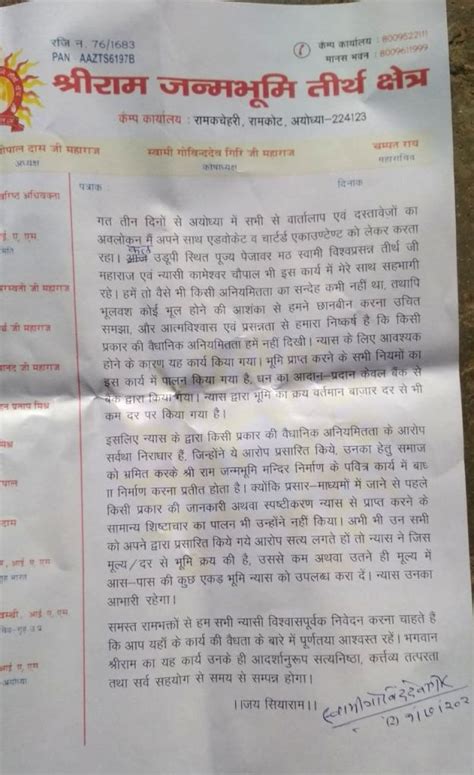 रजि न. 76/1683
PAN AAZTS6197B
कैम्प कार्यालय : 8009522111
मानस भवन : 8009611999
श्रीराम जन्मभूमि तीर्थ क्षेत्र
कैम्प कार्यालय : रामकचेहरी, रामकोट, अयोध्या-224123
गोपाल दास जी महाराज
अध्यक्ष
स्वामी गोविन्ददेव गिरि जी महाराज
कोषाध्यक्ष
चम्पत राय
महासचिव
पत्रांक :
दिनांक
गत तीन दिनों से अयोध्या में सभी से वार्तालाप एवं दस्तावेजों का
अवलोकन मैं अपने साथ एडवोकेट व चार्टर्ड एकाउण्टेण्ट को लेकर करता
रहा। कल उडूपी स्थित पूज्य पेजावर मठ स्वामी विश्वप्रसन्न तीर्थ जी
महाराज एवं न्यासी कामेश्वर चौपाल भी इस कार्य में मेरे साथ सहभागी
रहे। हमें तो वैसे भी किसी अनियमितता का सन्देह कभी नहीं था, तथापि
भूलवश कोई भूल होने की आशंका से हमने छानबीन करना उचित
समझा, और आत्मविश्वास एवं प्रसन्नता से हमारा निष्कर्ष है कि किसी
प्रकार की वैधानिक अनियमितता हमें नहीं दिखी। न्यास के लिए आवश्यक
होने के कारण यह कार्य किया गया। भूमि प्राप्त करने के सभी नियमों का
इस कार्य में पालन किया गया है, धन का आदान-प्रदान केवल बैंक से
बैंक द्वारा किया गया। न्यास द्वारा भूमि का क्रय वर्तमान बाजार दर से भी
कम दर पर किया गया है।
इसलिए न्यास के द्वारा किसी प्रकार की वैधानिक अनियमितता के आरोप
सर्वथा निराधार हैं, जिन्होंने ये आरोप प्रसारित किये, उनका हेतु समाज
को भ्रमित करके श्री राम जन्मभूमि मन्दिर निर्माण के पवित्र कार्य में बाध
ा निर्माण करना प्रतीत होता है। क्योंकि प्रसार-माध्यमों में जाने से पहले
किसी प्रकार की जानकारी अथवा स्पष्टीकरण न्यास से प्राप्त करने के
सामान्य शिष्टाचार का पालन भी उन्होंने नहीं किया। अभी भी उन सभी
को अपने द्वारा प्रसारित किये गये आरोप सत्य लगते हों तो न्यास ने जिस
मूल्य/दर से भूमि क्रय की है, उससे कम अथवा उतने ही मूल्य में
आस-पास की कुछ एकड़ भूमि न्यास को उपलब्ध करा दें। न्यास उनका
आभारी रहेगा।
समस्त रामभक्तों से हम सभी न्यासी विश्वासपूर्वक निवेदन करना चाहते हैं
कि आप यहाँ के कार्य की वैधता के बारे में पूर्णतया आश्वस्त रहें। भगवान
श्रीराम का यह कार्य उनके ही आदर्शानुरूप सत्यनिष्ठा, कर्त्तव्य तत्परता
तथा सर्व सहयोग से समय से सम्पन्न होगा।
।।जय सियाराम।।